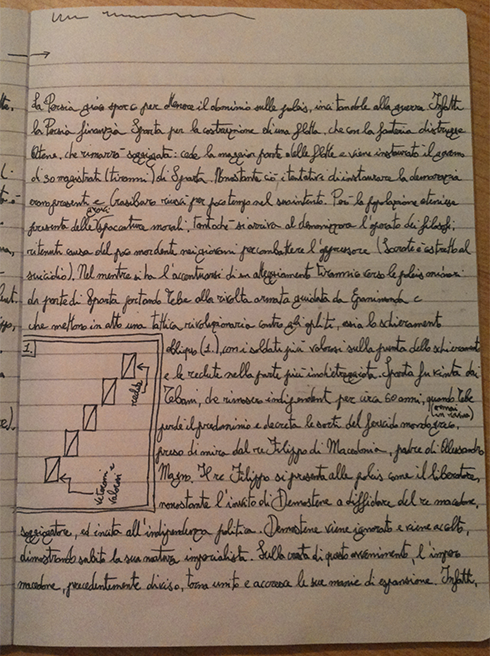 La Persia gioca sporco per ottenere il dominio sulle poleis, incitandole alla guerra. Infatti
la Persia finanzia Sparta per la costruzione di una flotta, che con la fanteria distrugge
Atene, che rimarrà soggiogata: cede la maggior parte delle flotte e viene instaurato il governo
di 30 magistrati (tiranni) di Sparta. Nonostante ciò i tentativi di instaurare la democrazia
sempre presenti e Trasibulo riuscì per poco tempo nel suo intento. Però la popolazione ateniese
presenta delle gravi spaccature morali. Tant'è che si arriva al demonizzare l'operato dei filosofi,
ritenuti causa del poco mordente nei giovani per combattere l'oppressore (Socrate è costretto al
suicidio). Nel mentre si ha l'accentuarsi di un atteggiamento tirannico verso le poleis
da parte di Sparta portando Tebe alla rivolta armata guidata da Epaminonda e
che mettono in atto una tattica rivoluzionaria contro gli opliti, ossia lo schieramento
1.
obliquo (1.), con i soldati più valorosi sulla punta dello schieramento
e le reclute nella parte più indietreggiata. Sparta fu vinta dai
reclute
Tebani, che rimasero indipendenti per circa 60 anni, quando Tebe
perde il predominio e decreta le sorti del fu mondo greco,
(ormai in rovina)
preso di mira dal re Filippo di Macedonia, padre di Alessandro
Magno. Il re Filippo si presenta alle poleis come il liberatore,
veterani e
valorosi
nonostante l'invito di Demostene a diffidare del re macedone,
soggiogatore, ed incita all'indipendenza politica. Demostene viene ignorato e viene accolto,
dimostrando subito la sua natura imperialista. Sulla cresta di questo avvenimento, l'impero
macedone, precedentemente diviso, torna unito e accresce le sue manie di espansione. Infatti,